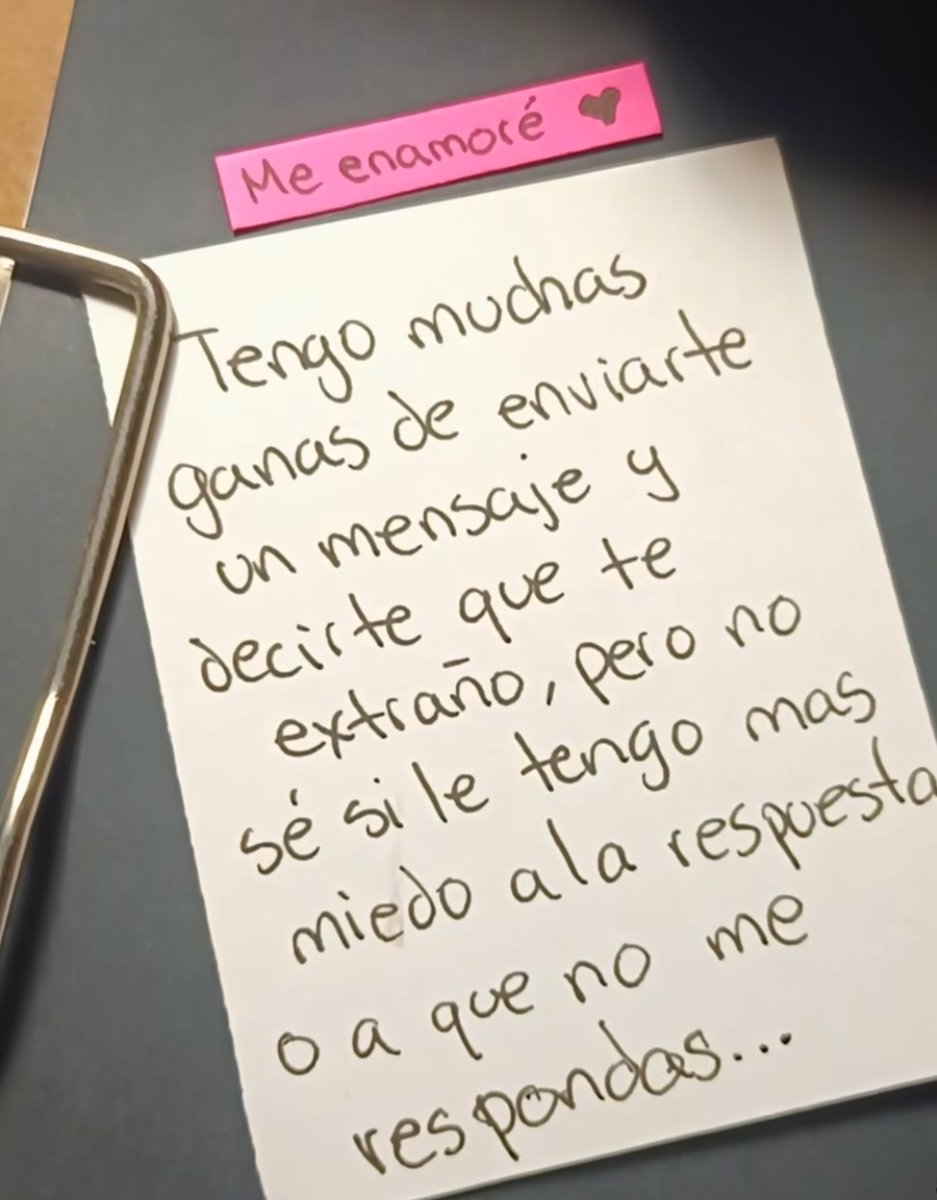 Me enamoré ♥
Tengo muchas
ganas de enviarte
un mensaje y
decirte que te
extraño, pero no
sé si le tengo mas
miedo a la respuesta
o a que no me
respondas...